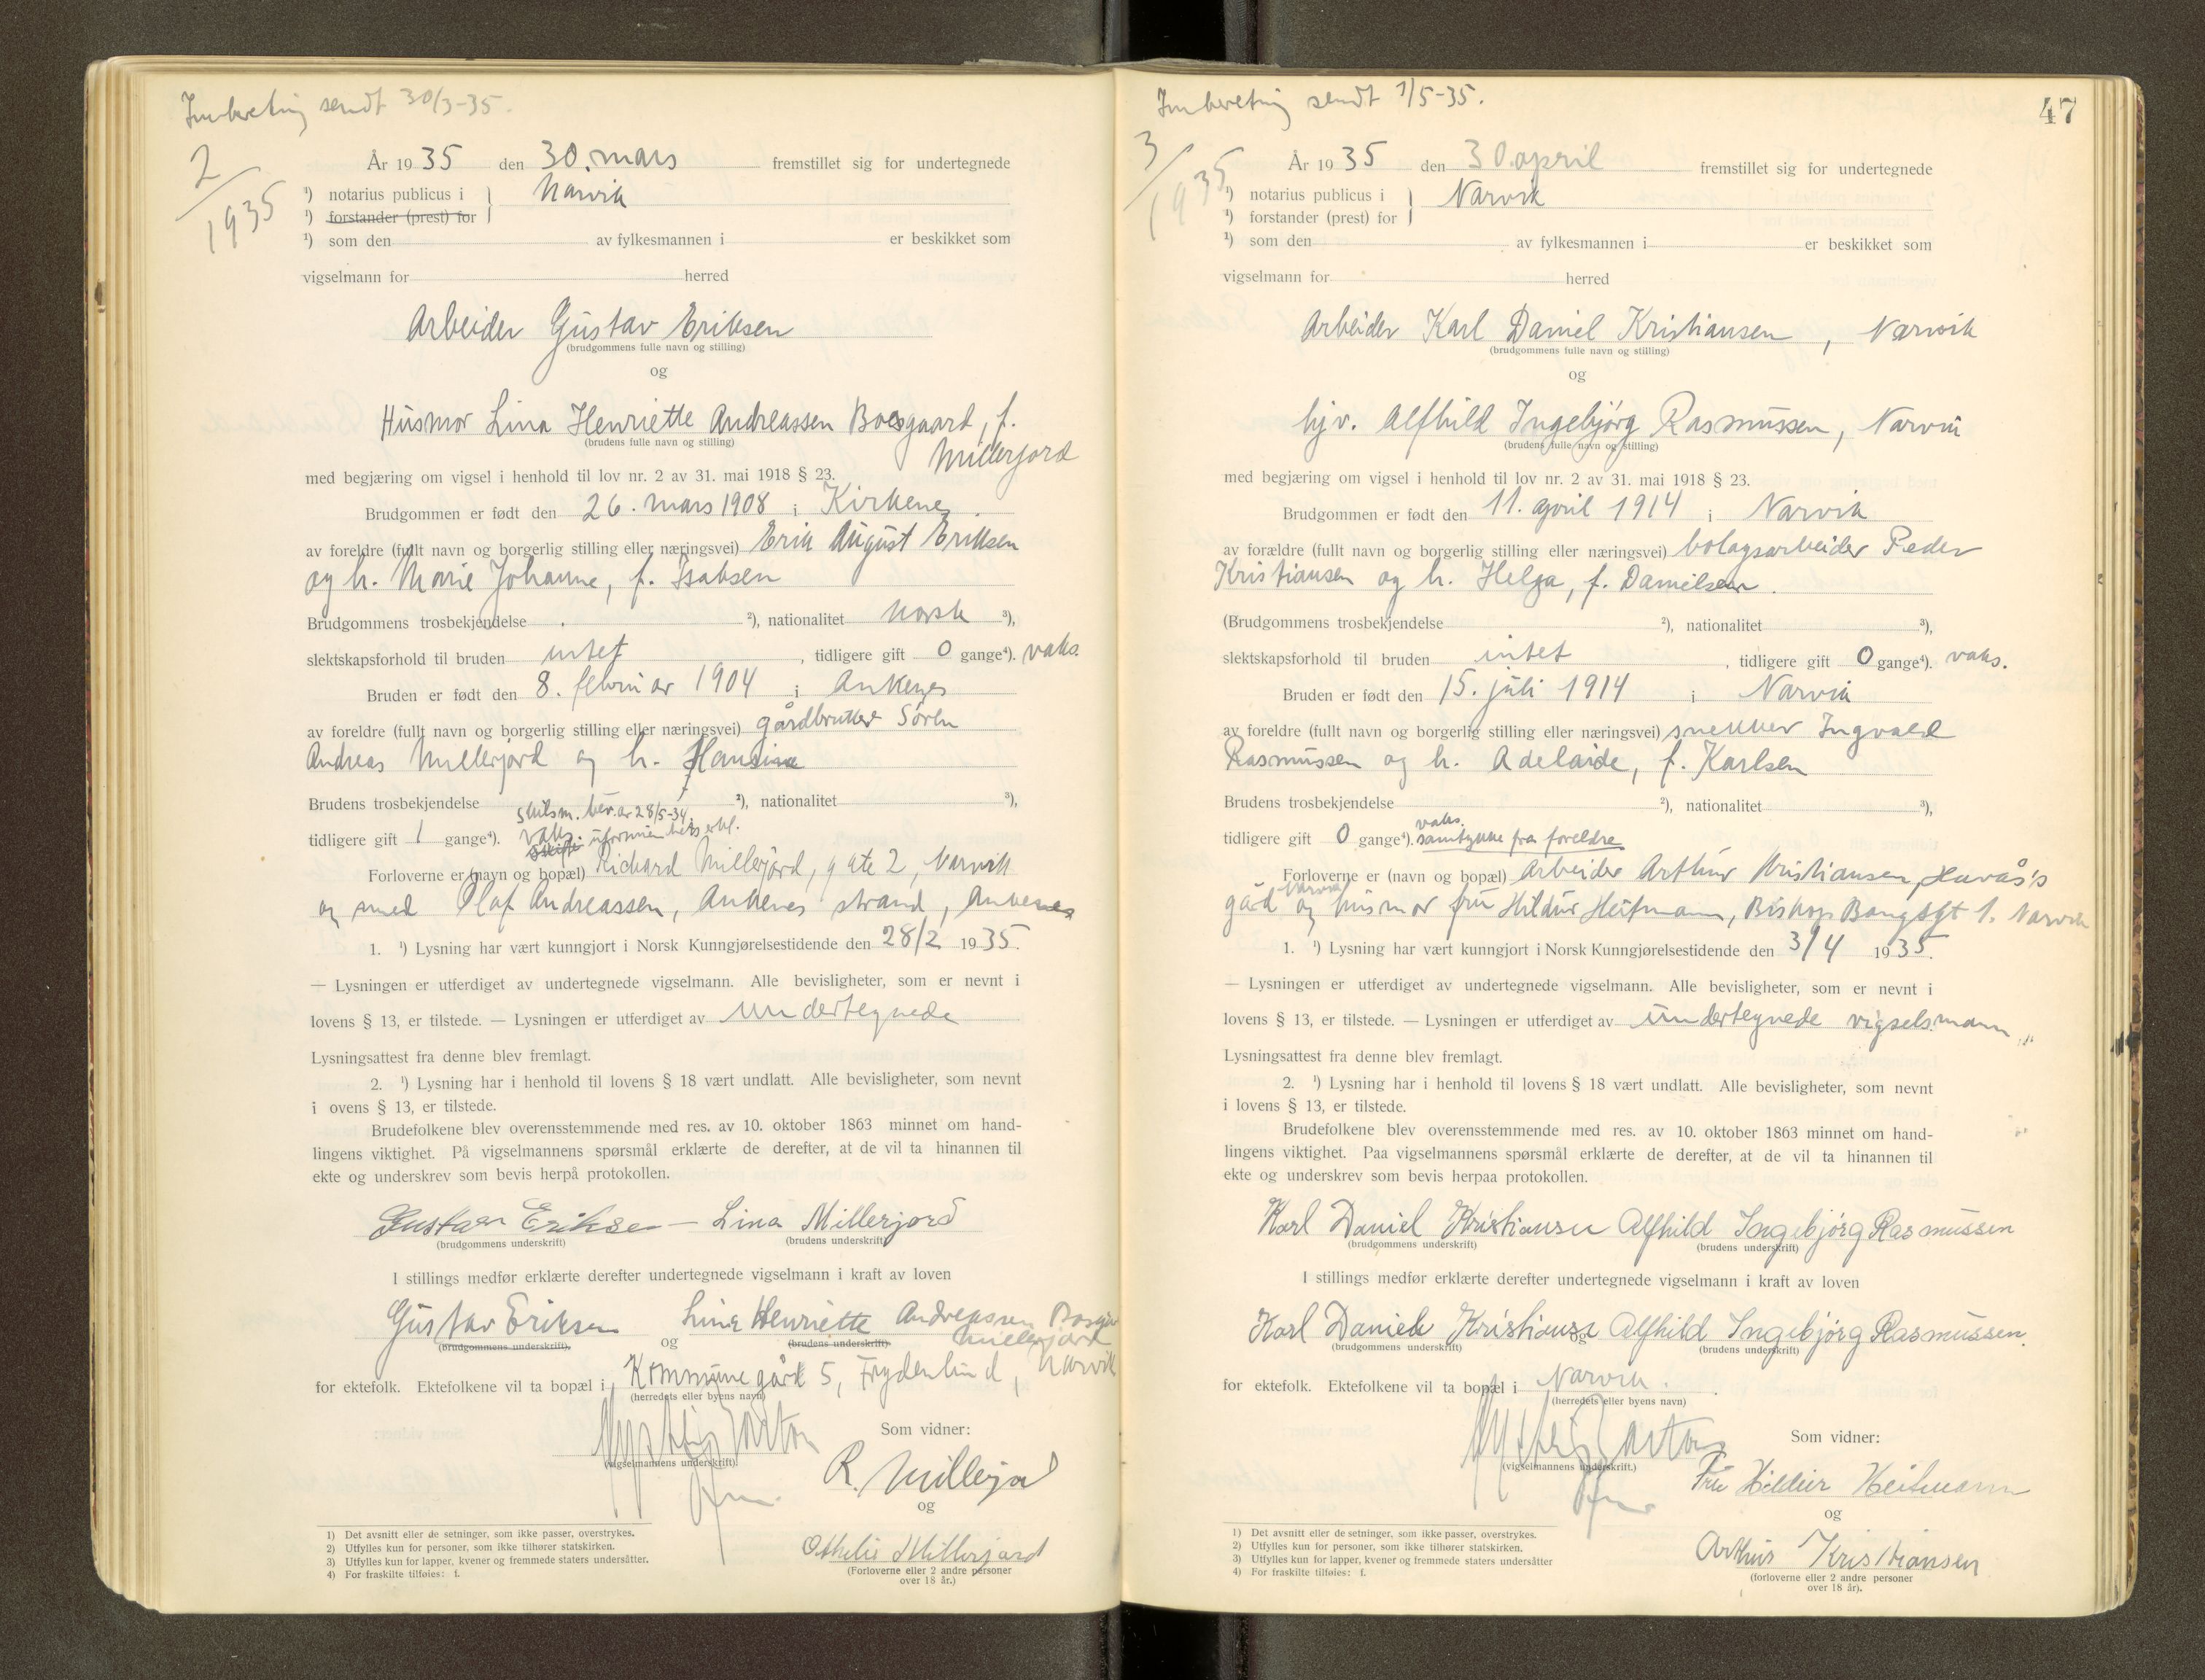 Innberetning sendt 30/3-35.
2/1935
År 1935 den 30. mars fremstillet sig for undertegnede
¹) notarius publicus i } Narvik
¹) forstander (prest) for
¹) som den av fylkesmannen i er beskikket som
vigselmann for herred
Arbeider Gustav Eriksen
(brudgommens fulle navn og stilling)
og
Husmor Lina Henriette Andreassen Bosgaard, f.
Millerjord
(brudens fulle navn og stilling)
med begjæring om vigsel i henhold til lov nr. 2 av 31. mai 1918 § 23.
Brudgommen er født den 26. mars 1908 i Kirkenes.
av foreldre (fullt navn og borgerlig stilling eller næringsvei) Erik August Eriksen
og h. Marie Johanne, f. Isaksen
Brudgommens trosbekjendelse ²), nationalitet norsk ³),
slektskapsforhold til bruden intet, tidligere gift 0 gange⁴). vaks.
Bruden er født den 8. februar 1904 i Ankenes
av foreldre (fullt navn og borgerlig stilling eller næringsvei) gårdbruker Sören
Andreas Millerjord og h. Hansine
Brudens trosbekjendelse ²), nationalitet ³),
skilsm. bev. av 28/5-34.
tidligere gift 1 gange⁴). vaks. uformuenhets erkl.
Forloverne er (navn og bopæl) Richard Millerjord, g ate 2, Narvik
og smed Olaf Andreassen, Ankenes strand, Ankenes
1. ¹) Lysning har vært kunngjort i Norsk Kunngjørelsestidende den 28/2 1935.
— Lysningen er utferdiget av undertegnede vigselmann. Alle bevisligheter, som er nevnt i
lovens § 13, er tilstede. — Lysningen er utferdiget av undertegnede
Lysningsattest fra denne blev fremlagt.
2. ¹) Lysning har i henhold til lovens § 18 vært undlatt. Alle bevisligheter, som nevnt
i ovens § 13, er tilstede.
Brudefolkene blev overensstemmende med res. av 10. oktober 1863 minnet om hand-
lingens viktighet. På vigselmannens spørsmål erklærte de derefter, at de vil ta hinannen til
ekte og underskrev som bevis herpå protokollen.
Gustav Eriksen — Lina Millerjord
(brudgommens underskrift) (brudens underskrift)
I stillings medfør erklærte derefter undertegnede vigselmann i kraft av loven
Gustav Eriksen og Lina Henriette Andreassen
Millerjord
(brudgommens underskrift). (brudens underskrift)
for ektefolk. Ektefolkene vil ta bopæl i Kommunegård 5, Frydenlund, Narvik
(herredets eller byens navn)
(vigselmannens underskrift)
Som vidner:
R. Millerjord
og
Othelie Millerjord
(Forloverne eller 2 andre personer
over 18 år.)
1) Det avsnitt eller de setninger, som ikke passer, overstrykes.
2) Utfylles kun for personer, som ikke tilhører statskirken.
3) Utfylles kun for lapper, kvener og fremmede staters undersåtter.
4) For fraskilte tilføies: f.
Innberetning sendt 1/5-35.
47
3/1935
År 1935 den 30. april fremstillet sig for undertegnede
¹) notarius publicus i } Narvik
¹) forstander (prest) for
¹) som den av fylkesmannen i er beskikket som
vigselmann for herred
Arbeider Karl Daniel Kristiansen, Narvik
(brudgommens fulle navn og stilling)
og
hjv. Alfhild Ingebjørg Rasmussen, Narvik
(brudens fulle navn og stilling)
med begjæring om vigsel i henhold til lov nr. 2 av 31. mai 1918 § 23.
Brudgommen er født den 11. april 1914 i Narvik
av forældre (fullt navn og borgerlig stilling eller næringsvei) bolagsarbeider Peder
Kristiansen og h. Helga, f. Danielsen.
(Brudgommens trosbekjendelse ²), nationalitet ³),
slektskapsforhold til bruden intet, tidligere gift 0 gange⁴). vaks.
Bruden er født den 15. juli 1914 i Narvik
av foreldre (fullt navn og borgerlig stilling eller næringsvei) snekker Ingvald
Rasmussen og h. Adelaide, f. Karlsen
Brudens trosbekjendelse ²), nationalitet ³),
vaks.
tidligere gift 0 gange⁴). samtykke fra foreldre
Forloverne er (navn og bopæl) Arbeider Arthur Kristiansen, Havås's
gård Narvik og husmor fru Hildur Heitmann, Biskop Bangsgt 1. Narvik
1. ¹) Lysning har vært kunngjort i Norsk Kunngjørelsestidende den 3/4 1935.
— Lysningen er utferdiget av undertegnede vigselmann. Alle bevisligheter, som er nevnt i
lovens § 13, er tilstede. — Lysningen er utferdiget av undertegnede vigselsmann
Lysningsattest fra denne blev fremlagt.
2. ¹) Lysning har i henhold til lovens § 18 vært undlatt. Alle bevisligheter, som nevnt
i lovens § 13, er tilstede.
Brudefolkene blev overensstemmende med res. av 10. oktober 1863 minnet om hand-
lingens viktighet. Paa vigselmannens spørsmål erklærte de derefter, at de vil ta hinannen til
ekte og underskrev som bevis herpaa protokollen.
Karl Daniel Kristiansen Alfhild Ingebjørg Rasmussen
(brudgommens underskrift) (brudens underskrift)
I stillings medfør erklærte derefter undertegnede vigselmann i kraft av loven
Karl Daniel Kristiansen og Alfhild Ingebjørg Rasmussen.
(brudgommens underskrift) (brudens underskrift)
for ektefolk. Ektefolkene vil ta bopæl i Narvik.
(herredets eller byens navn)
(vigselmannens underskrift.)
Som vidner:
Fru Hildur Heitmann
og
Arthur Kristiansen
(forloverne eller 2 andre personer
over 18 år).
1) Det avsnitt eller de setninger, som ikke passer, overstrykes.
2) Utfylles kun for personer, som ikke tilhører statskirken.
3) Utfylles kun for lapper, kvener og fremmede staters undersåtter
4) For fraskilte tilføies: f.